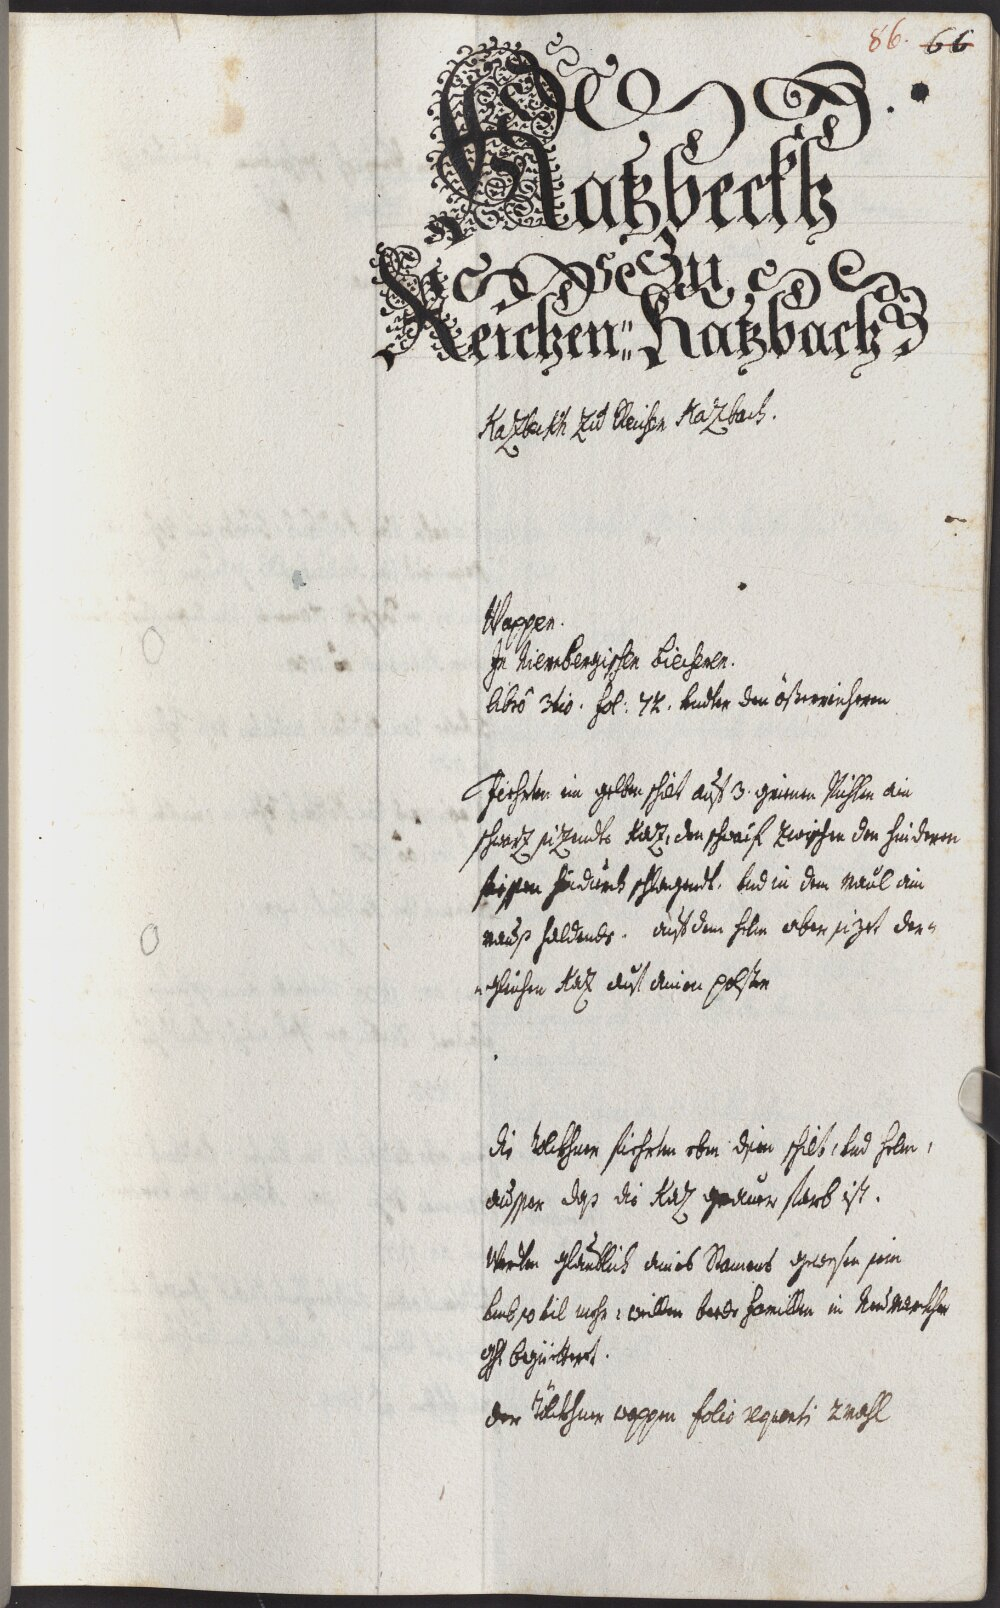 86. 66
Katzbeckh
Zu
Reichen= Katzbach
Katzbeckh zu Reichen Katzbach.
Wappen.
In Nürnbergischen Biecheren.
libro 3tio. fol: 72. under den Österreicheren
Fiehrten im gelben schilt auf 3. grienen Pichlen ain
schwarz sizendte Kaz, den schwaif zwischen den hinderen
fiessen hindurch schlagendt. und in dem maul ain
mauß haldendt. auf dem helm aber sizet der=
=gleichen Kaz auf ainem polster
die fiehrten eben disen schilt, und helm,
ausser daß die Kaz farb ist.
Werden glaublich aines Namens gewesen sein
umb so vil mehr, weillen beede familien in
begüettert.
der wappen folio sequenti